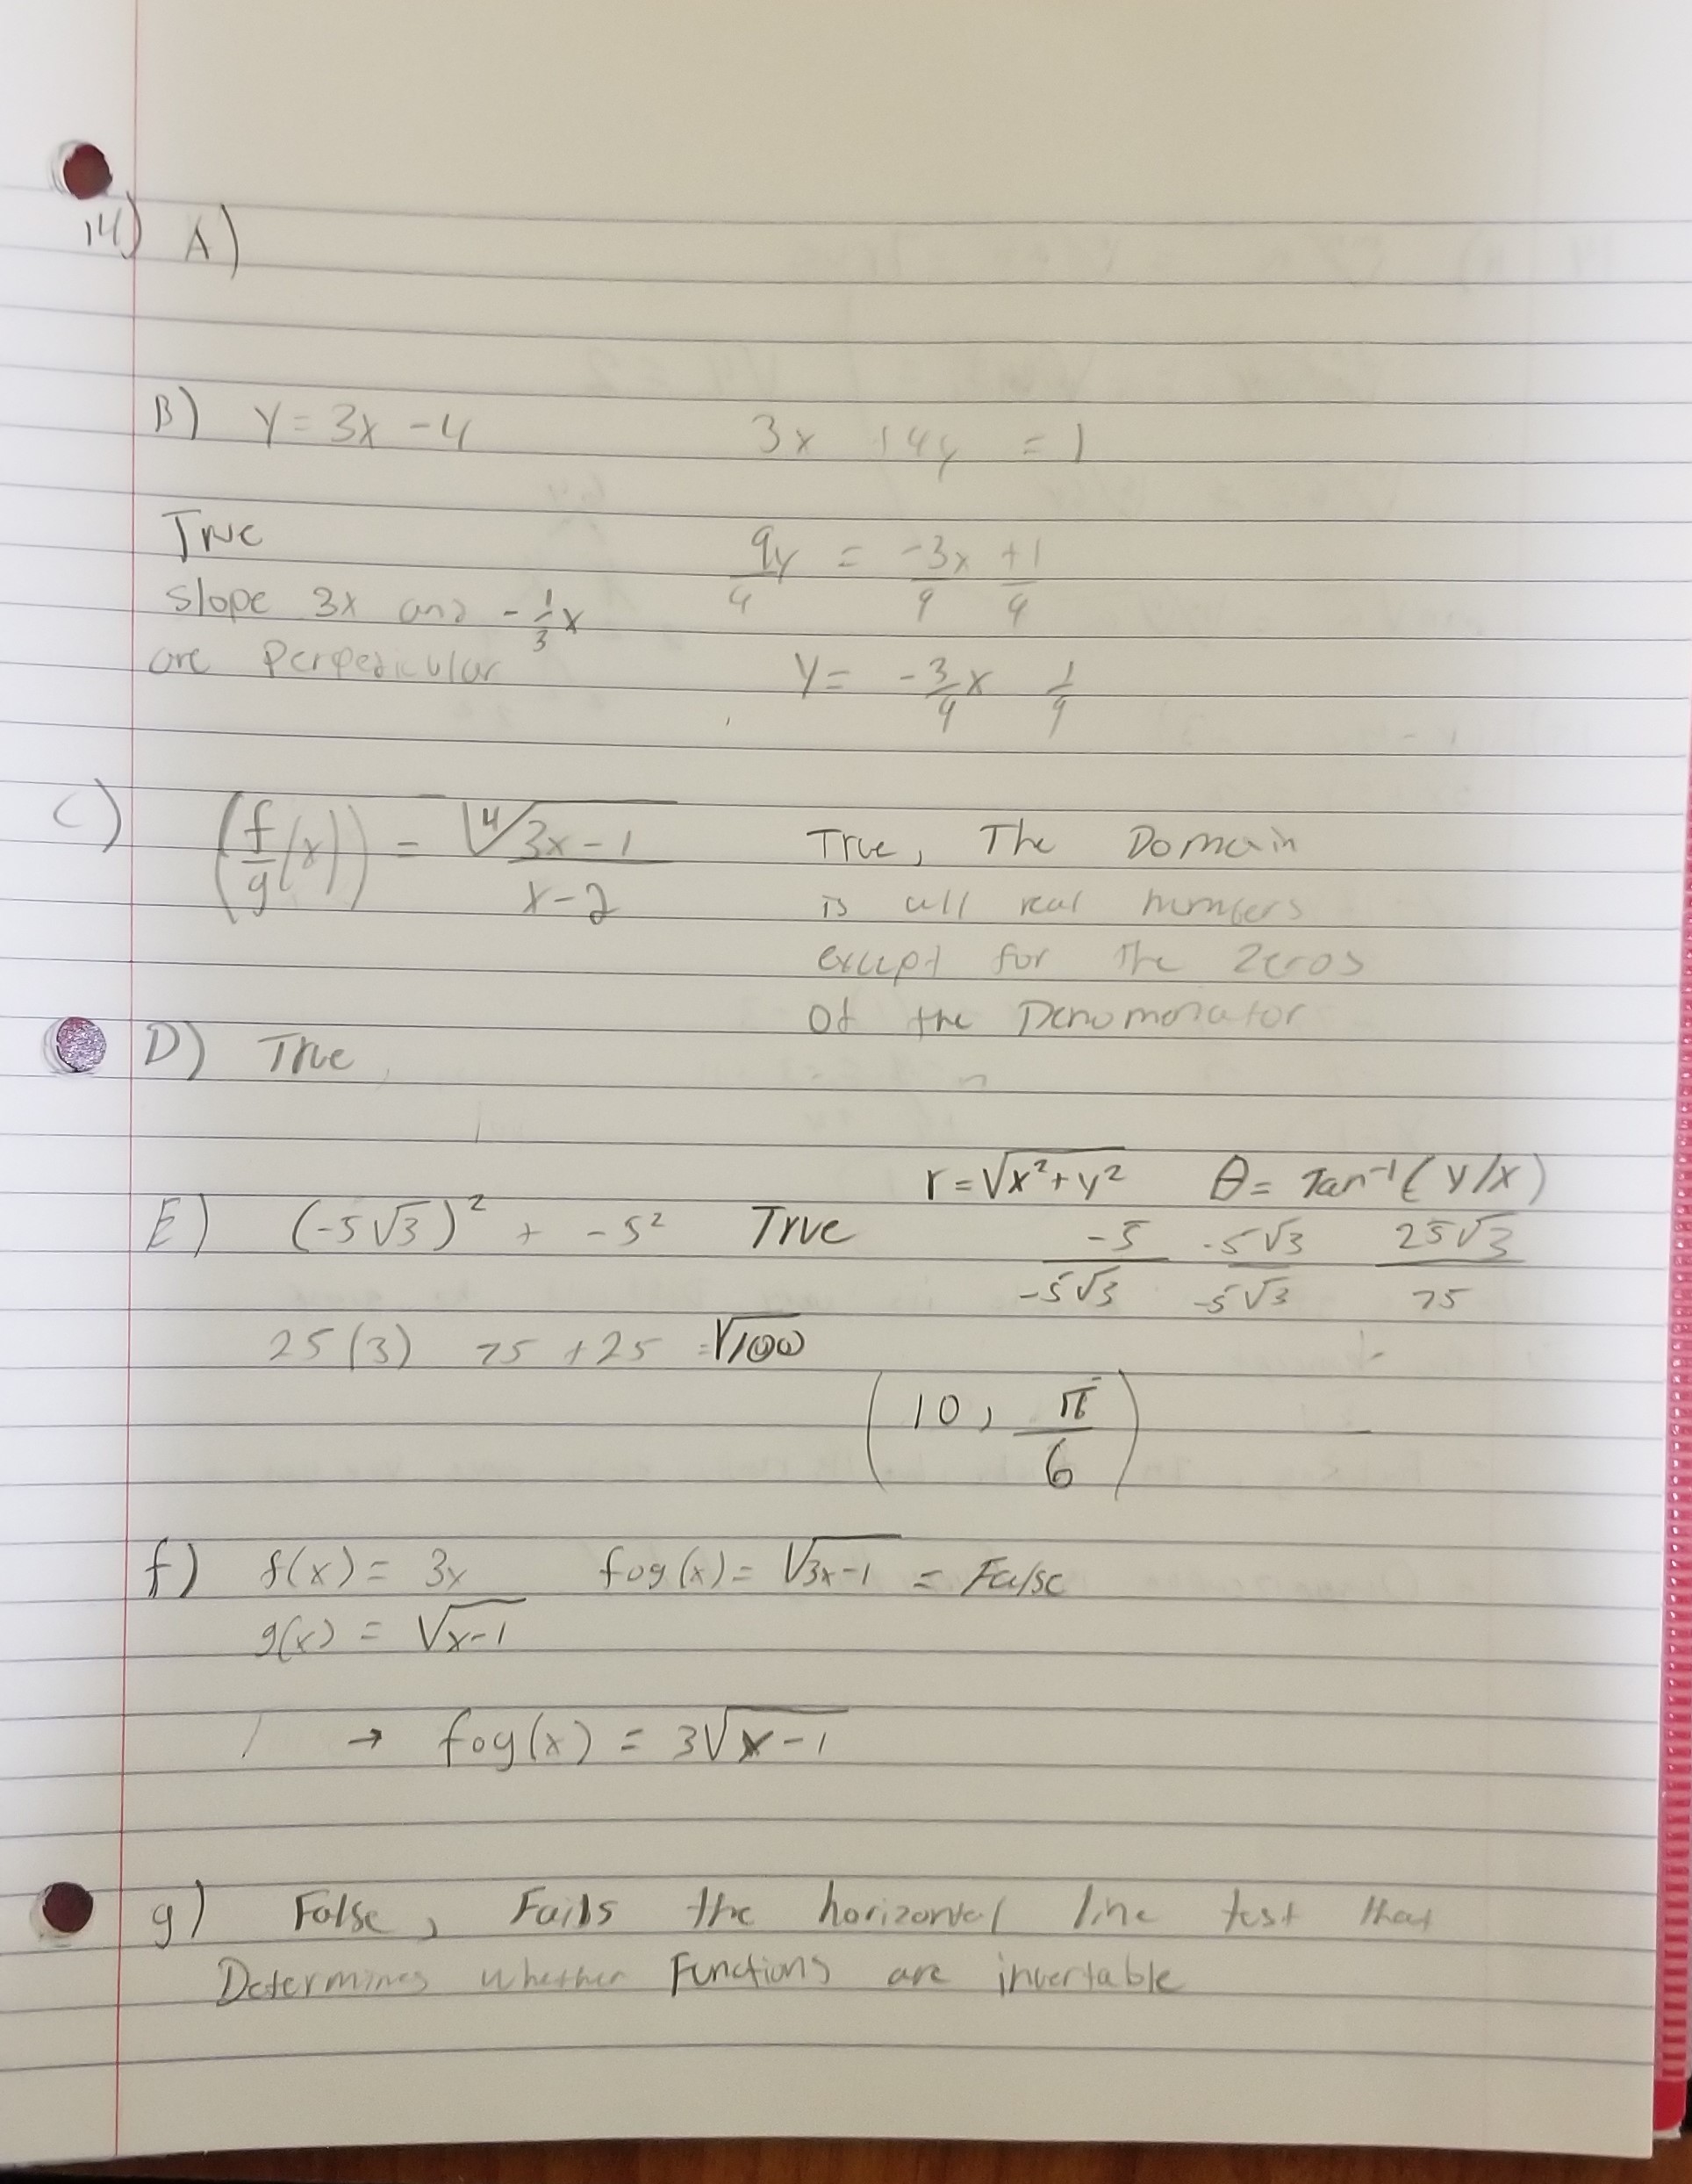 14) A)
B) Y = 3x - 4 3x + 4y = 1
True
4y/4 = -3x/4 +1/4
slope 3x and -1/3x
are Perpedicular
Y = -3/4x 1/4
C) (f/g(x)) = ∜3x-1 / x-2 True, The Domain
is all real numbers
except for the zeros
of the Denomonator
D) True,
r = √x²+y² θ = Tan⁻¹(y/x)
E) (-5√3)² + -5² True -5/-5√3 -5√3/-5√3 25√3/75
25(3) 75 + 25 = √100
(10, π/6)
f) f(x) = 3x fog(x) = √3x-1 = False
g(x) = √x-1
→ fog(x) = 3√x-1
g) False, Fails the horizontal line test that
Determines whether Functions are invertable